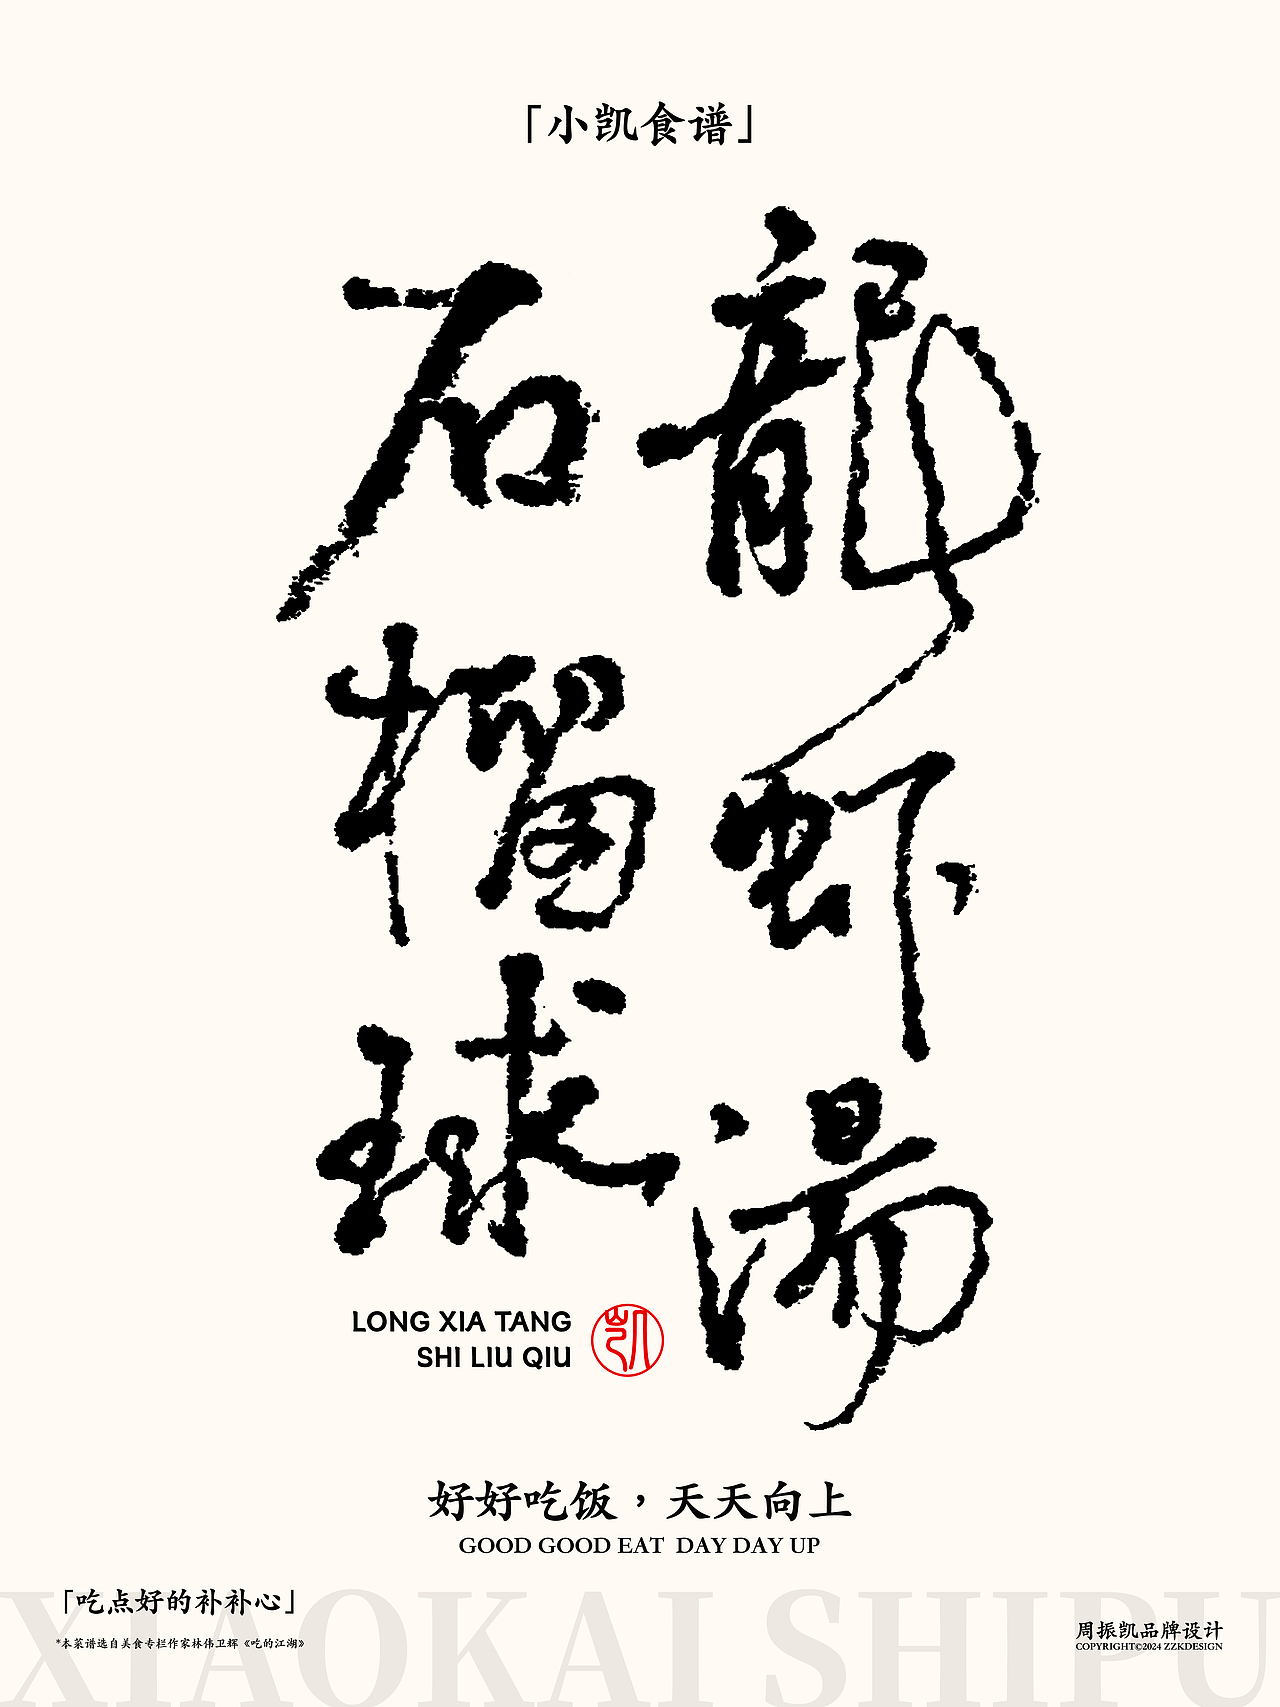 「小凯食谱」
龍虾湯
石榴球
LONG XIA TANG
SHI LIU QIU
凯
好好吃饭，天天向上
GOOD GOOD EAT DAY DAY UP
XIAOKAI SHIPU
「吃点好的补补心」
*本菜谱选自美食专栏作家林伟卫辉《吃的江湖》
周振凯品牌设计
COPYRIGHT©2024 ZZKDESIGN